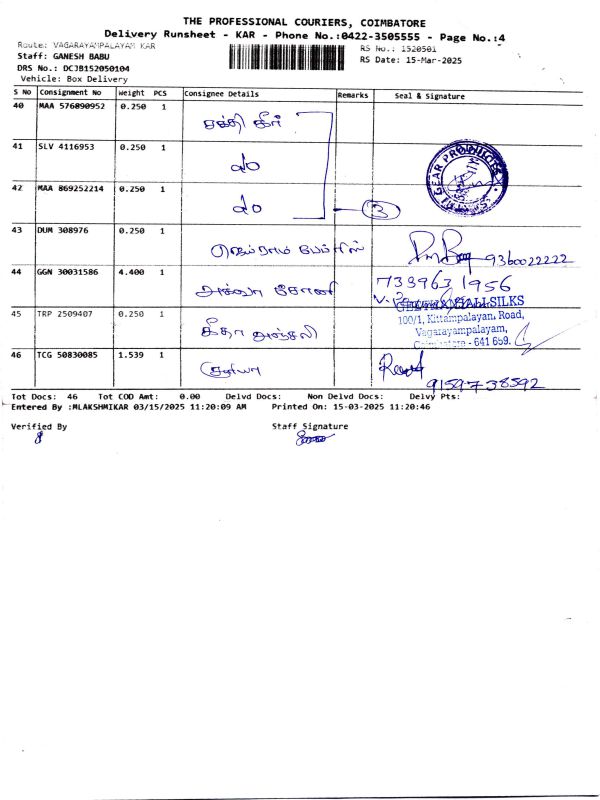 THE PROFESSIONAL COURIERS, COIMBATORE
Delivery Runsheet - KAR - Phone No.:0422-3505555 - Page No.:4
Route: VAGARAYAMPALAYAM KAR
RS No.: 1520501
Staff: GANESH BABU
RS Date: 15-Mar-2025
DRS No.: DCJB152050104
Vehicle: Box Delivery
S No Consignment No Weight PCS Consignee Details Remarks Seal & Signature
40 MAA 576890952 0.250 1 சக்தி கீர்
41 SLV 4116953 0.250 1
42 MAA 869252214 0.250 1
3
GEAR PRODUCTS
43 DUM 308976 0.250 1 9360022222
44 GGN 30031586 4.400 1 7339631956
45 TRP 2509407 0.250 1 கீதா அஞ்சலி
GEETHANJALI SILKS
100/1, Kittampalayan, Road,
Vagarayampalayam,
Coimbatore - 641 659.
46 TCG 50830085 1.539 1 சூர்யா
9159738592
Tot Docs: 46 Tot COD Amt: 0.00 Delvd Docs: Non Delvd Docs: Delvy Pts:
Entered By :MLAKSHMIKAR 03/15/2025 11:20:09 AM Printed On: 15-03-2025 11:20:46
Verified By Staff Signature